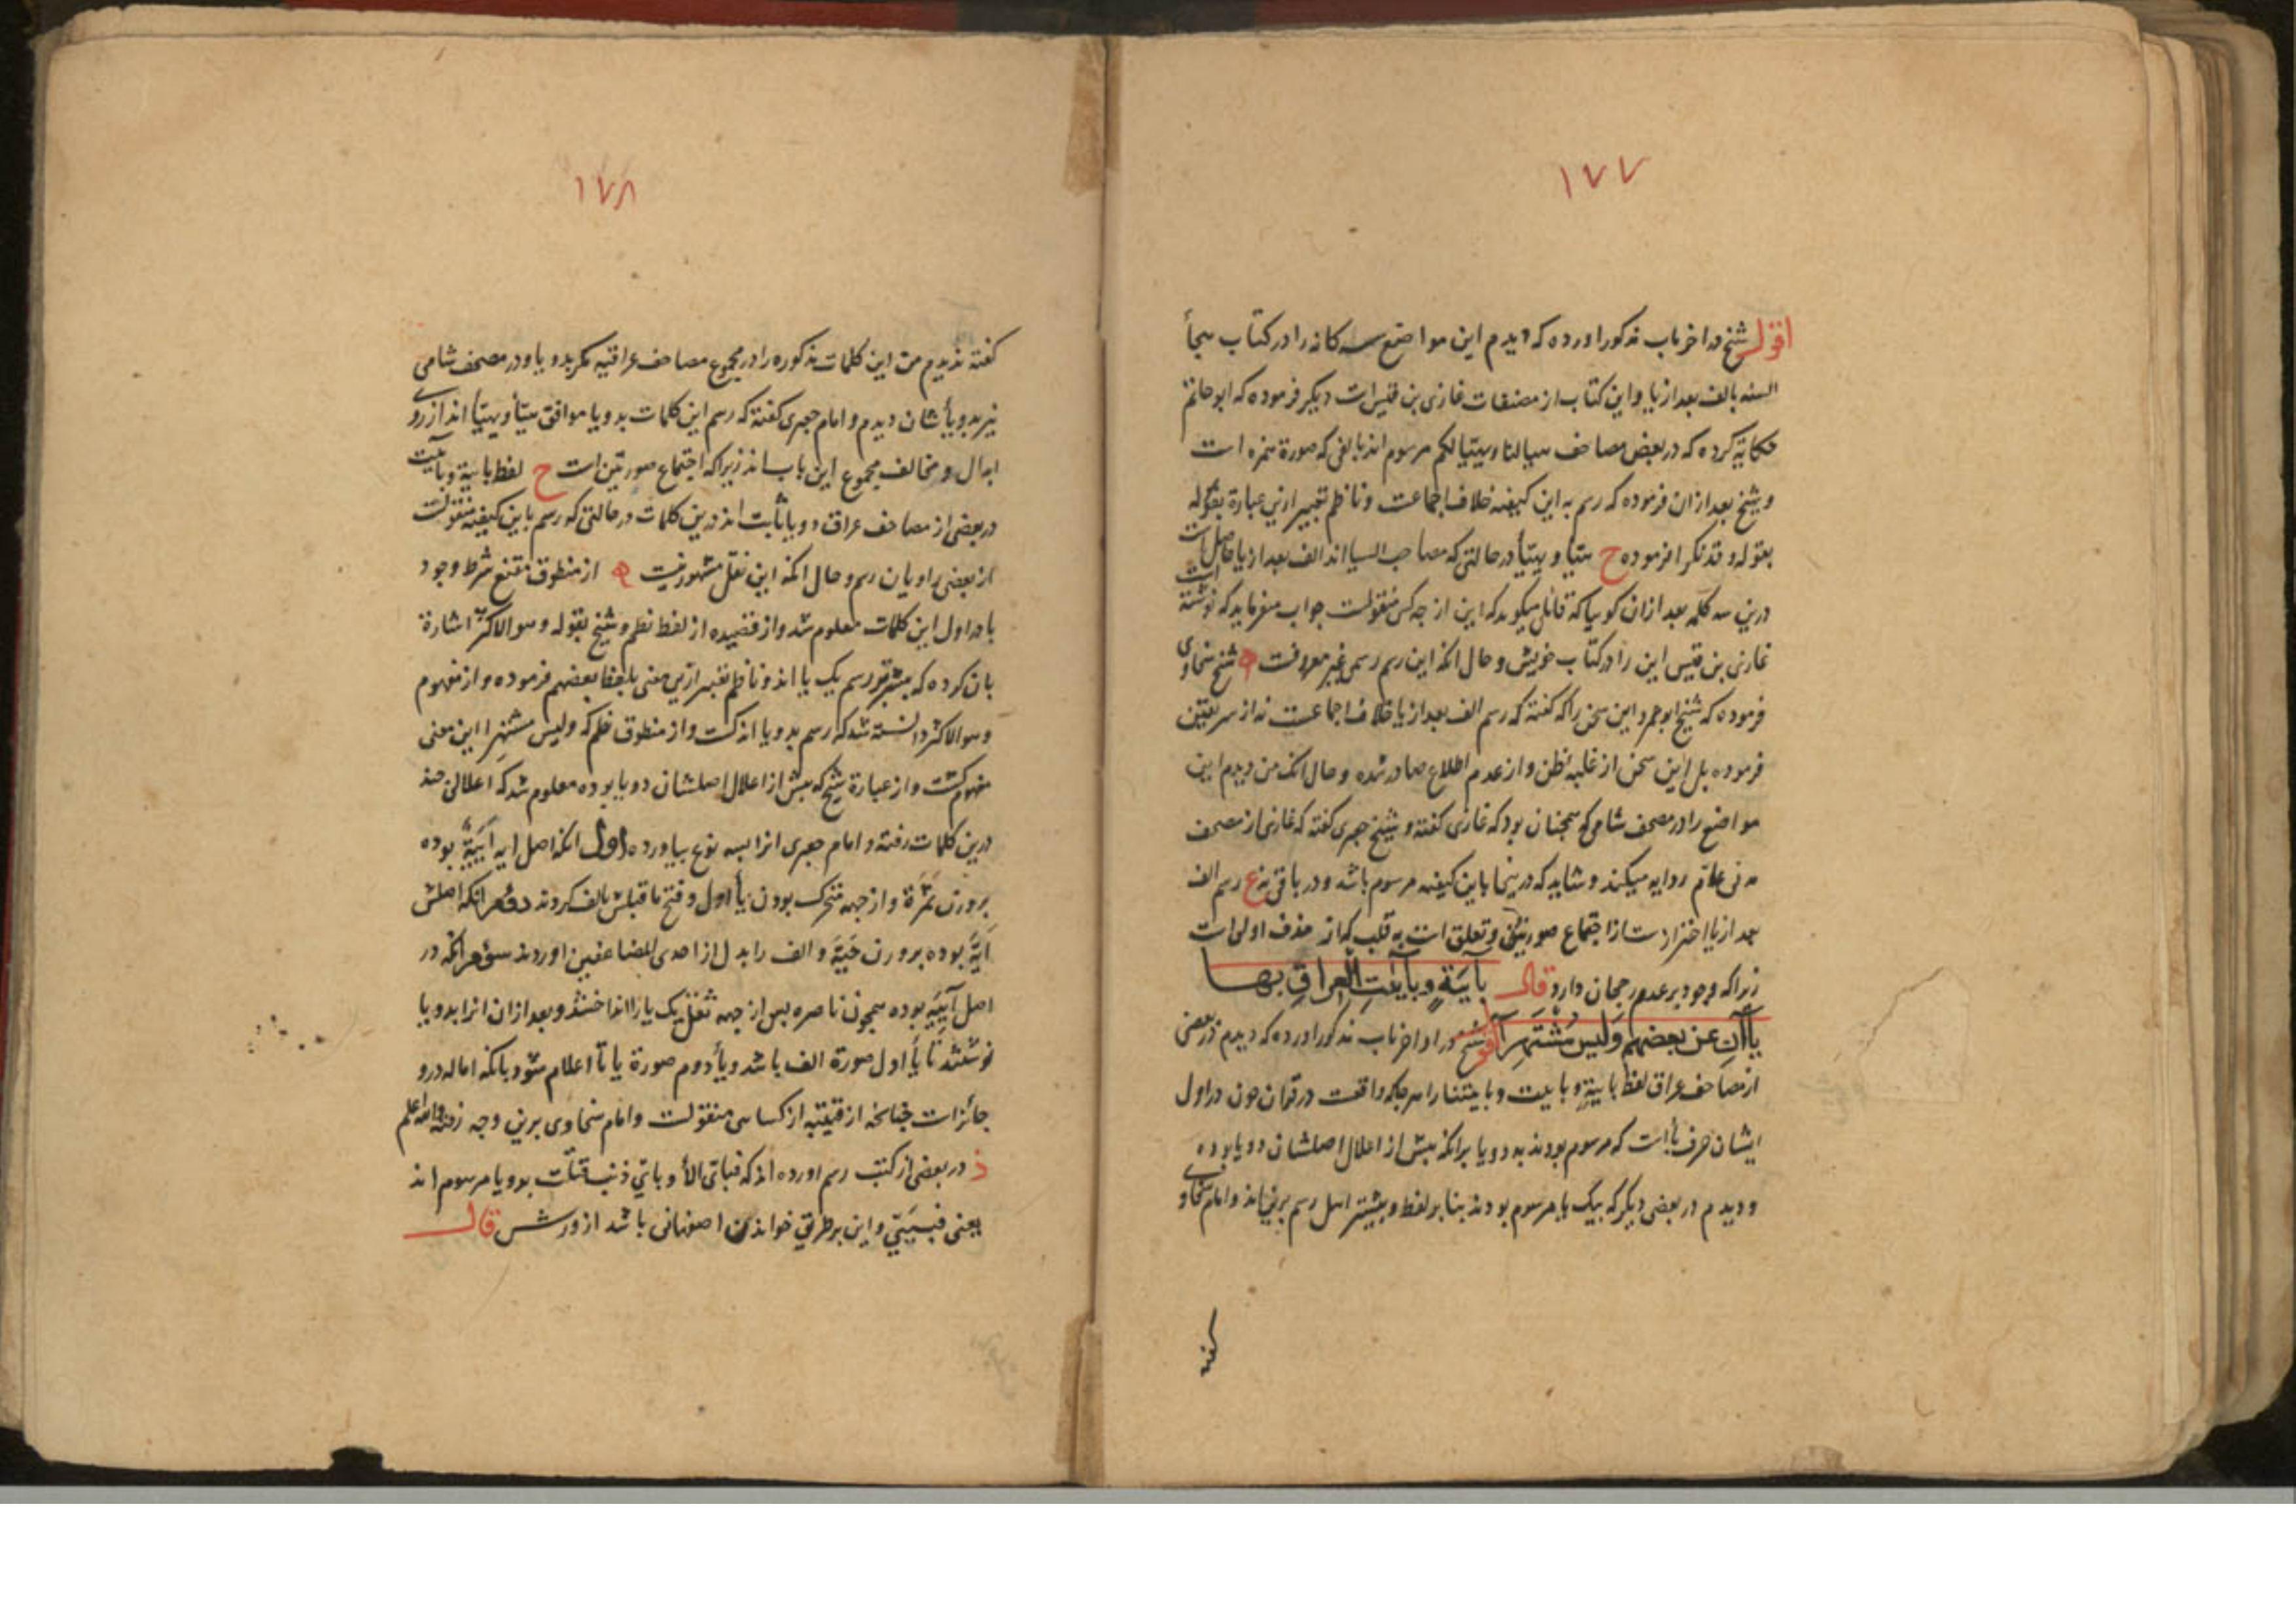 ١٧٧
اقول شیخ در اخر باب مذکور اورده که دیدم این مواضع سه کانه را در کتاب هجأ
السنه بالف بعد از یا و این کتاب از مصنفات غازی بن قیس است دیکر فرموده که ابو حاتم
حکایة کرده که در بعض مصاحف سیالنا و یهیّیا لکم مرسوم اند بالفی که صورة همزه است
و شیخ بعد از ان فرموده که رسم به این کیفیه خلاف اجماعست و ناظم تعبیر ازین عبارة بقوله
بقوله و قد نکرا فرموده ح هیّیا و یهیّیا در حالتی که مصاحب السیا اند الف بعد از یا حاصل است
درین سه کلمه بعد از ان کویا که قائلی میکوید که این از چه کس منقولست جواب میفرماید که نوشته است
غازی بن قیس این را در کتاب خویش و حال انکه این رسم رسمی غیر معروفست ه شیخ سخاوی
فرموده که شیخ ابو عمرو این سخن را که کفته که رسم الف بعد از یا خلاف اجماعست نه از سر یقین
فرموده بل این سخن از غلبه ظن و از عدم اطلاع صادر شده و حال انک من دیدم این
مواضع را در مصحف شامی که همچنان بود که غازی کفته و شیخ جعبری کفته که غازی از مصحف
مدنی علاتم روایه میکند و شاید که در ینجا باین کیفیه مرسوم باشد و در باقی نه ع رسم الف
بعد از یا احتراز ست از اجتماع صورتین و تعلق است به قلب که از حذف اولی است
زیرا که وجود بر عدم رجحان دارد قال بِآيَيةٍ وبِآيٰتِ الْعِراقِ بِها
يَاآنِ عَن بَعضِهِم وَلَيسَ مُشْتَهِرا اقول شیخ در اواخر باب مذکور اورده که دیدم در بعضی
از مصاحف عراق لفظ باییة و باییت و باییتنا را هر جا که واقعست در قران چون در اول
ایشان حرف با است که مرسوم بودند به دو یا برانکه پیش از اعلال اصلشان دو یا بوده
و دیدم در بعضی دیکر که بیک یا مرسوم بودند بنا بر لفظ و بیشتر اهل رسم برینند و امام سخاوی
کفته
١٧٨
کفته ندیدم من این کلمات مذکوره را در مجموع مصاحف عراقیه مکر بدو یا و در مصحف شامی
نیز بدو یأ شان دیدم و امام جعبری کفته که رسم این کلمات بدو یا موافق هیّیأ و یهیّیأ اند از روی
ابدال و مخالف مجموع این باب اند زیرا که اجتماع صورتین است ح لفظ باییة و باییت
در بعضی از مصاحف عراق دو یا ثابت اند درین کلمات در حالتی که رسم باین کیفیه منقولست
از بعضی راویان رسم و حال انکه این نقل مشهور نیست ه از منطوق مقنع شرط وجود
با در اول این کلمات معلوم شد و از قضیده از لفظ نظم و شیخ بقوله و هو الاکثر اشارة
بان کرده که بیشتر رسم یک یا اند و ناظم تعبیر ازین معنی بلفظ بعضهم فرموده و از مفهوم
و هو الاکثر دانسته شد که رسم بدو یا اندکست و از منطوق نظم که و لیس مشتهرا این معنی
مفهوم کشت و از عبارة شیخ که پیش از اعلال اصلشان دو یا بوده معلوم شد که اعلالی چند
درین کلمات رفته و امام جعبری انرا بسه نوع بیاورده اول انکه اصل ایه اَیَیَةٌ بوده
بر وزن ثَمَرَة و از جهه متحرک بودن یأ اول و فتح ما قبلش بالف کردند دوم انکه اصلش
اَیَّةً بوده بر وزن حَیَّة و الف را بدل از احدی المضاعفین اوردند سوم انکه در
اصل آیِیَه بوده همچون ناصره پس از جهه ثقل یک یا را انداختند و بعد از ان انرا بدو یا
نوشتند تا یأ اول صورة الف باشد و یأ دوم صورة یا تا اعلام شود بانکه اماله درو
جائز است چنانچه از قتیبه از کسائی منقولست و امام سخاوی برین وجه رفته والله اعلم
ذ در بعضی از کتب رسم اورده اند که فبای الأ و بای ذنب قتلت بدو یا مرسوم اند
یعنی فبییّ و این بر طریق خواندن اصفهانی باشد از ورش قال